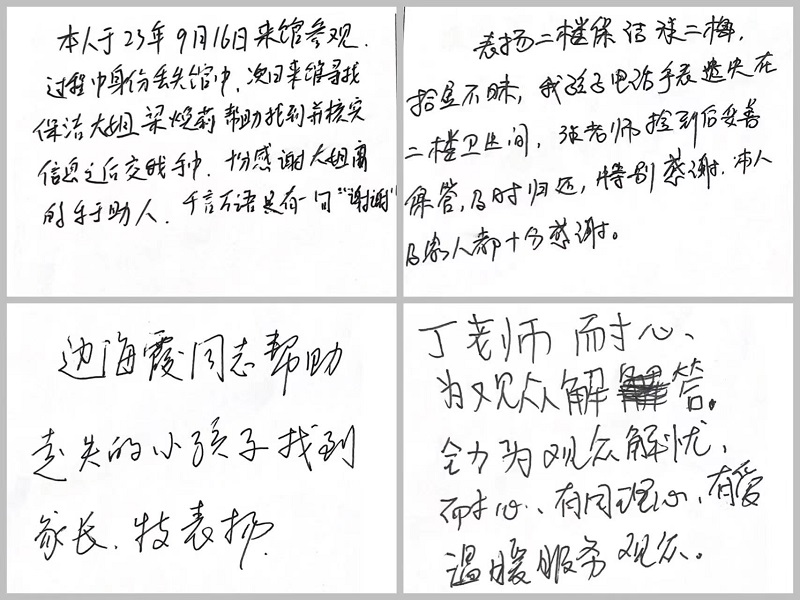 本人于23年9月16日来馆参观.
过程中身份丢失馆中,次日来馆寻找
保洁大姐梁焕莉帮助找到并核实
信息之后交我手中.十份感谢大姐高
的乐于助人.千言万语只有一句"谢谢"
表扬二楼保洁张二梅,
拾金不昧,我孩子电话手表遗失在
二楼卫生间,张老师捡到后妥善
保管,及时归还,特别感谢.本人
及家人都十分感谢。
边海霞同志帮助
走失的小孩子找到
家长.特表扬.
丁老师 耐心、
为观众解答。
全力为观众解忧,
耐心、有同理心、有爱
温暖服务观众。